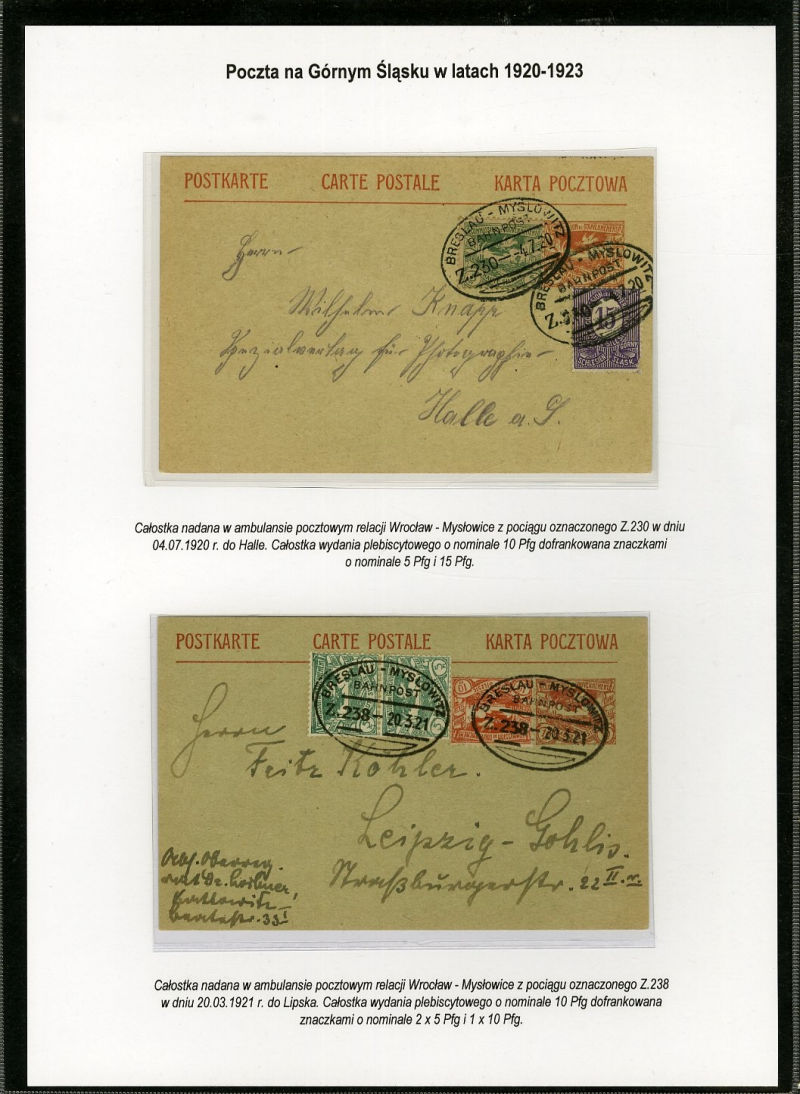 Poczta na Górnym Śląsku w latach 1920-1923
POSTKARTE CARTE POSTALE KARTA POCZTOWA
BRESLAU - MYSLOWITZ
BAHNPOST
Z.230 - -4.7.20
BRESLAU - MYSLOWITZ
BAHNPOST
15
Herrn
Wilhelm Knapp
Spezialverlag für Photographie
Halle a. S.
Całostka nadana w ambulansie pocztowym relacji Wrocław - Mysłowice z pociągu oznaczonego Z.230 w dniu
04.07.1920 r. do Halle. Całostka wydania plebiscytowego o nominale 10 Pfg dofrankowana znaczkami
o nominale 5 Pfg i 15 Pfg.
POSTKARTE CARTE POSTALE KARTA POCZTOWA
BRESLAU - MYSLOWITZ
BAHNPOST
Z.238 - 20.3.21
BRESLAU - MYSLOWITZ
BAHNPOST
Z.238 - 20.3.21
Herrn
Fritz Köhler.
Leipzig - Gohlis.
Straßburgerstr. 22 II. r.
Abs. Oberreg.
rat Dr.
Kattowitz
33 I
Całostka nadana w ambulansie pocztowym relacji Wrocław - Mysłowice z pociągu oznaczonego Z.238
w dniu 20.03.1921 r. do Lipska. Całostka wydania plebiscytowego o nominale 10 Pfg dofrankowana
znaczkami o nominale 2 x 5 Pfg i 1 x 10 Pfg.